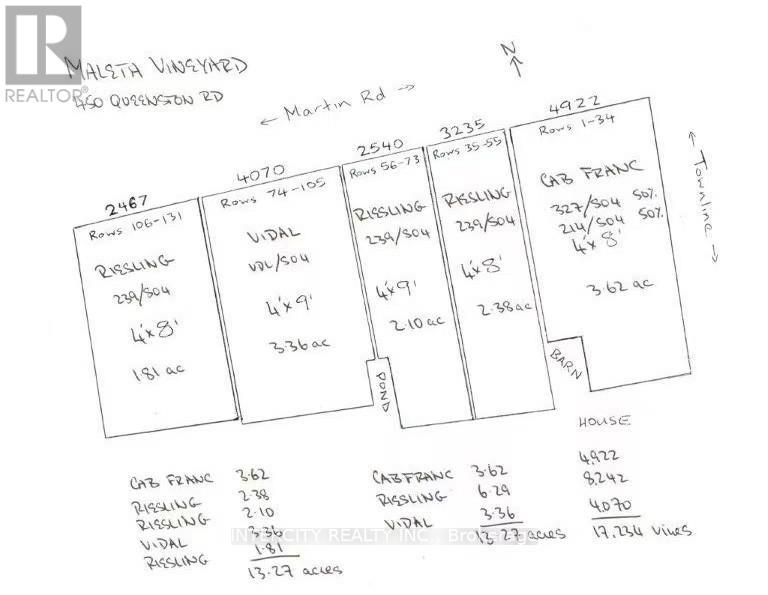 REALTOR®
MALETA VINEYARD
450 QUEENSTON RD
N
← Martin Rd →
← Townline →
2467
Rows 106-131
RIESLING
239/SO4
4'x8'
1.81 ac
4070
Rows 74-105
VIDAL
VDL/SO4
4'x9'
3.36 ac
2540
Rows 56-73
RIESLING
239/SO4
4'x9'
2.10 ac
3235
Rows 35-55
RIESLING
239/SO4
4'x8'
2.38 ac
4922
Rows 1-34
CAB FRANC
327/SO4 50%
214/SO4 50%
4'x8'
3.62 ac
POND
BARN
HOUSE
CAB FRANC 3.62
RIESLING 2.38
RIESLING 2.10
VIDAL 3.36
RIESLING 1.81
13.27 acres
CAB FRANC 3.62
RIESLING 6.29
VIDAL 3.36
13.27 acres
4,922
8,242
4,070
17,234 vines
INTERCITY REALTY INC., Brokerage